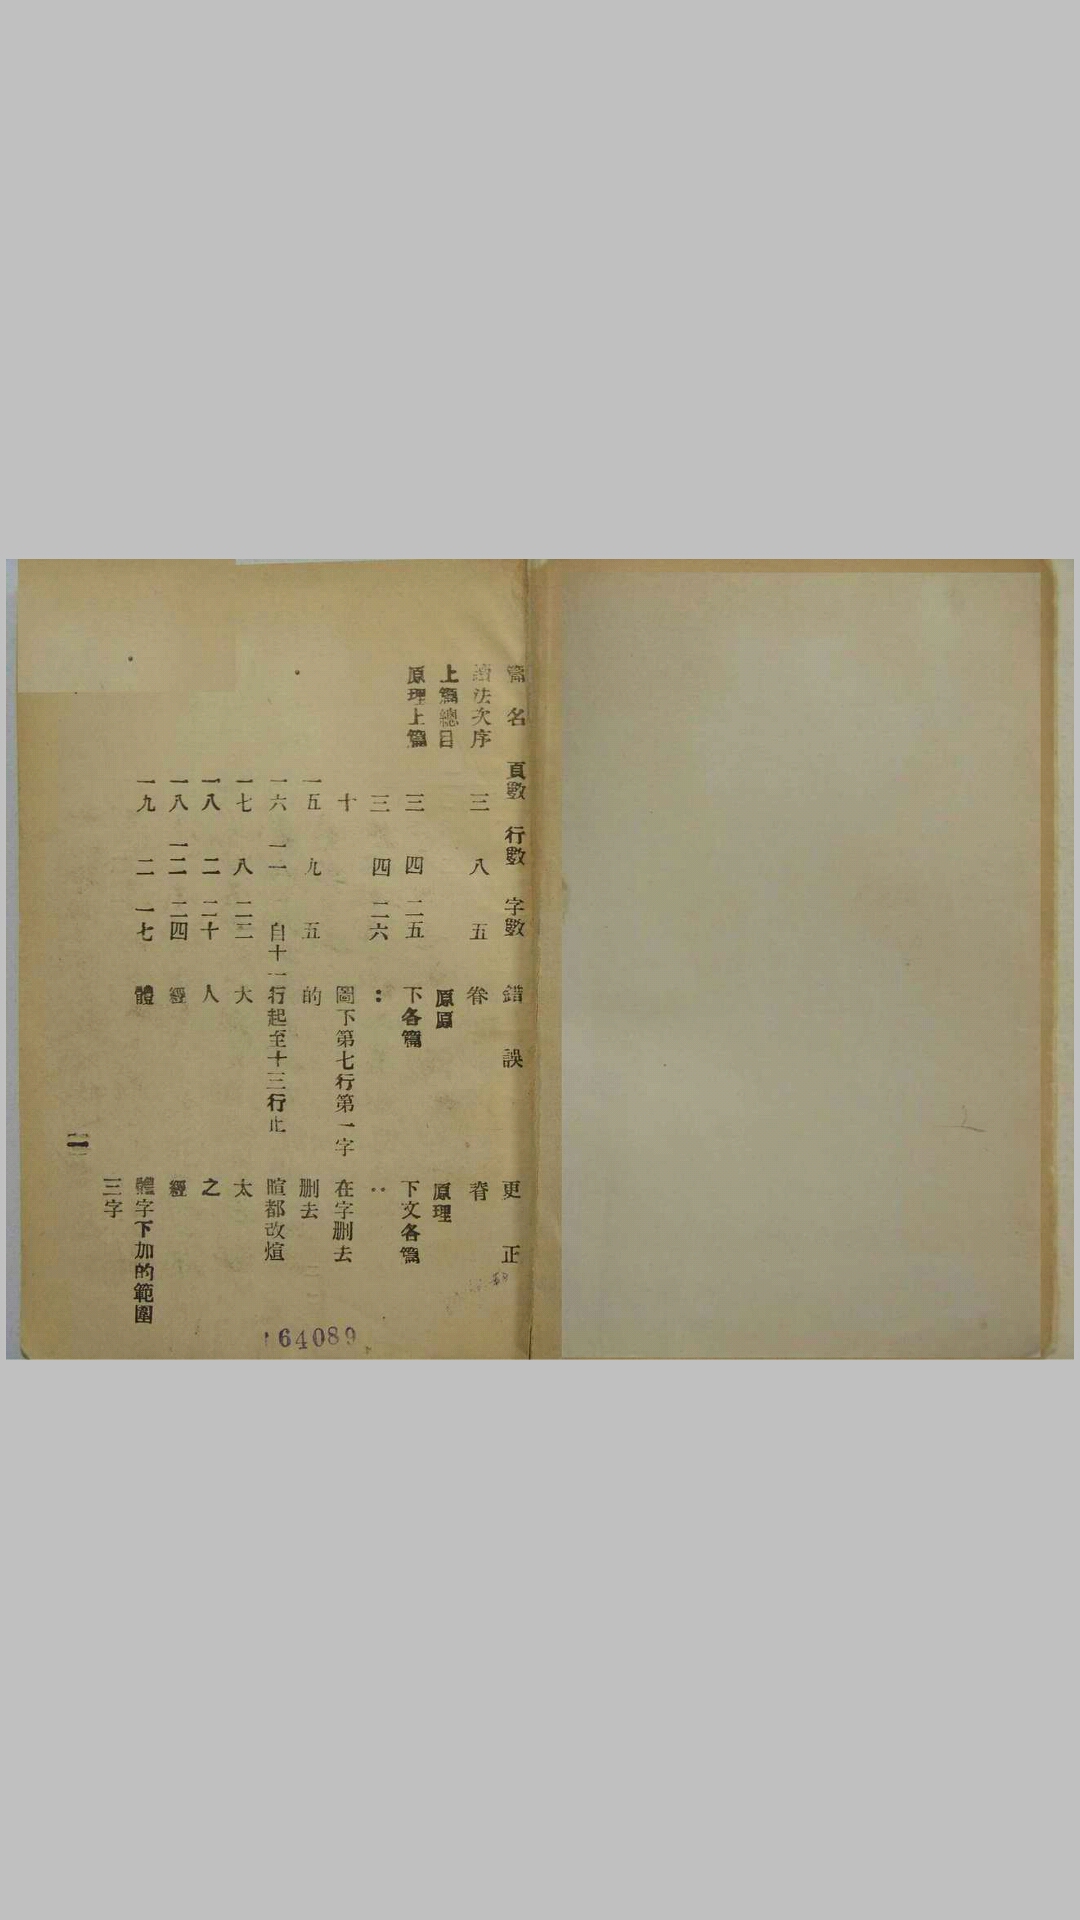 篇名 頁數 行數 字數 錯誤 更正
讀法次序 三 八 五 眷 脊
上篇總目 原原 原理
原理上篇 三 四 二五 下各篇 下文各篇
三 四 二六 : ‥
十 圖下第七行第一字 在字刪去
一五 九 五 的 刪去
一六 一一 自十一行起至十三行止 暄都改煊
一七 八 二三 大 太
一八 二 二十 人 之
一八 一二 二四 經
一九 二 一七 體 體字下加的範圍
三字
一
164089